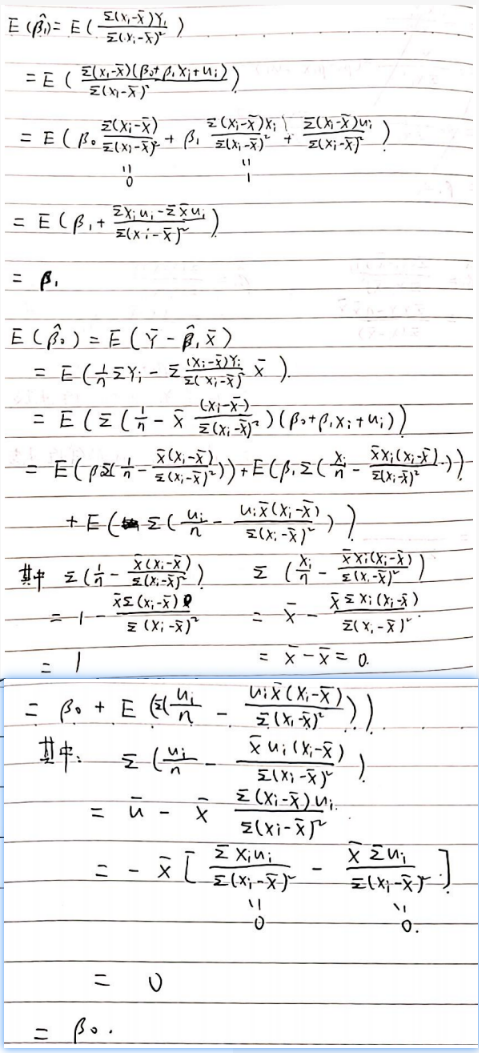 E(β̂₁) = E( Σ(Xᵢ-X̄)Yᵢ / Σ(Xᵢ-X̄)² )
= E( Σ(Xᵢ-X̄)(β₀+β₁Xᵢ+uᵢ) / Σ(Xᵢ-X̄)² )
= E( β₀ Σ(Xᵢ-X̄) / Σ(Xᵢ-X̄)² + β₁ Σ(Xᵢ-X̄)Xᵢ / Σ(Xᵢ-X̄)² + Σ(Xᵢ-X̄)uᵢ / Σ(Xᵢ-X̄)² )
= =
0 1
= E( β₁ + ΣXᵢuᵢ-ΣX̄uᵢ / Σ(Xᵢ-X̄)² )
= β₁
E(β̂₀) = E( Ȳ - β̂₁X̄ )
= E( 1/n ΣYᵢ - Σ (Xᵢ-X̄)Yᵢ / Σ(Xᵢ-X̄)² X̄ ).
= E( Σ( 1/n - X̄ (Xᵢ-X̄) / Σ(Xᵢ-X̄)² )(β₀+β₁Xᵢ+uᵢ) )
= E( β₀Σ( 1/n - X̄(Xᵢ-X̄) / Σ(Xᵢ-X̄)² )) + E( β₁Σ( Xᵢ/n - X̄Xᵢ(Xᵢ-X̄) / Σ(Xᵢ-X̄)² ))
+ E( Σ( uᵢ/n - uᵢX̄(Xᵢ-X̄) / Σ(Xᵢ-X̄)² ) )
其中 Σ( 1/n - X̄(Xᵢ-X̄) / Σ(Xᵢ-X̄)² ) Σ( Xᵢ/n - X̄Xᵢ(Xᵢ-X̄) / Σ(Xᵢ-X̄)² )
= 1 - X̄Σ(Xᵢ-X̄) / Σ(Xᵢ-X̄)² = X̄ - X̄ΣXᵢ(Xᵢ-X̄) / Σ(Xᵢ-X̄)².
= 1 = X̄ - X̄ = 0.
= β₀ + E( Σ( uᵢ/n - uᵢX̄(Xᵢ-X̄) / Σ(Xᵢ-X̄)² )).
其中: Σ( uᵢ/n - X̄uᵢ(Xᵢ-X̄) / Σ(Xᵢ-X̄)² )
= ū - X̄ Σ(Xᵢ-X̄)uᵢ / Σ(Xᵢ-X̄)²
= - X̄ [ ΣXᵢuᵢ / Σ(Xᵢ-X̄)² - X̄Σuᵢ / Σ(Xᵢ-X̄)² ]
= =
0 0.
= 0
= β₀.